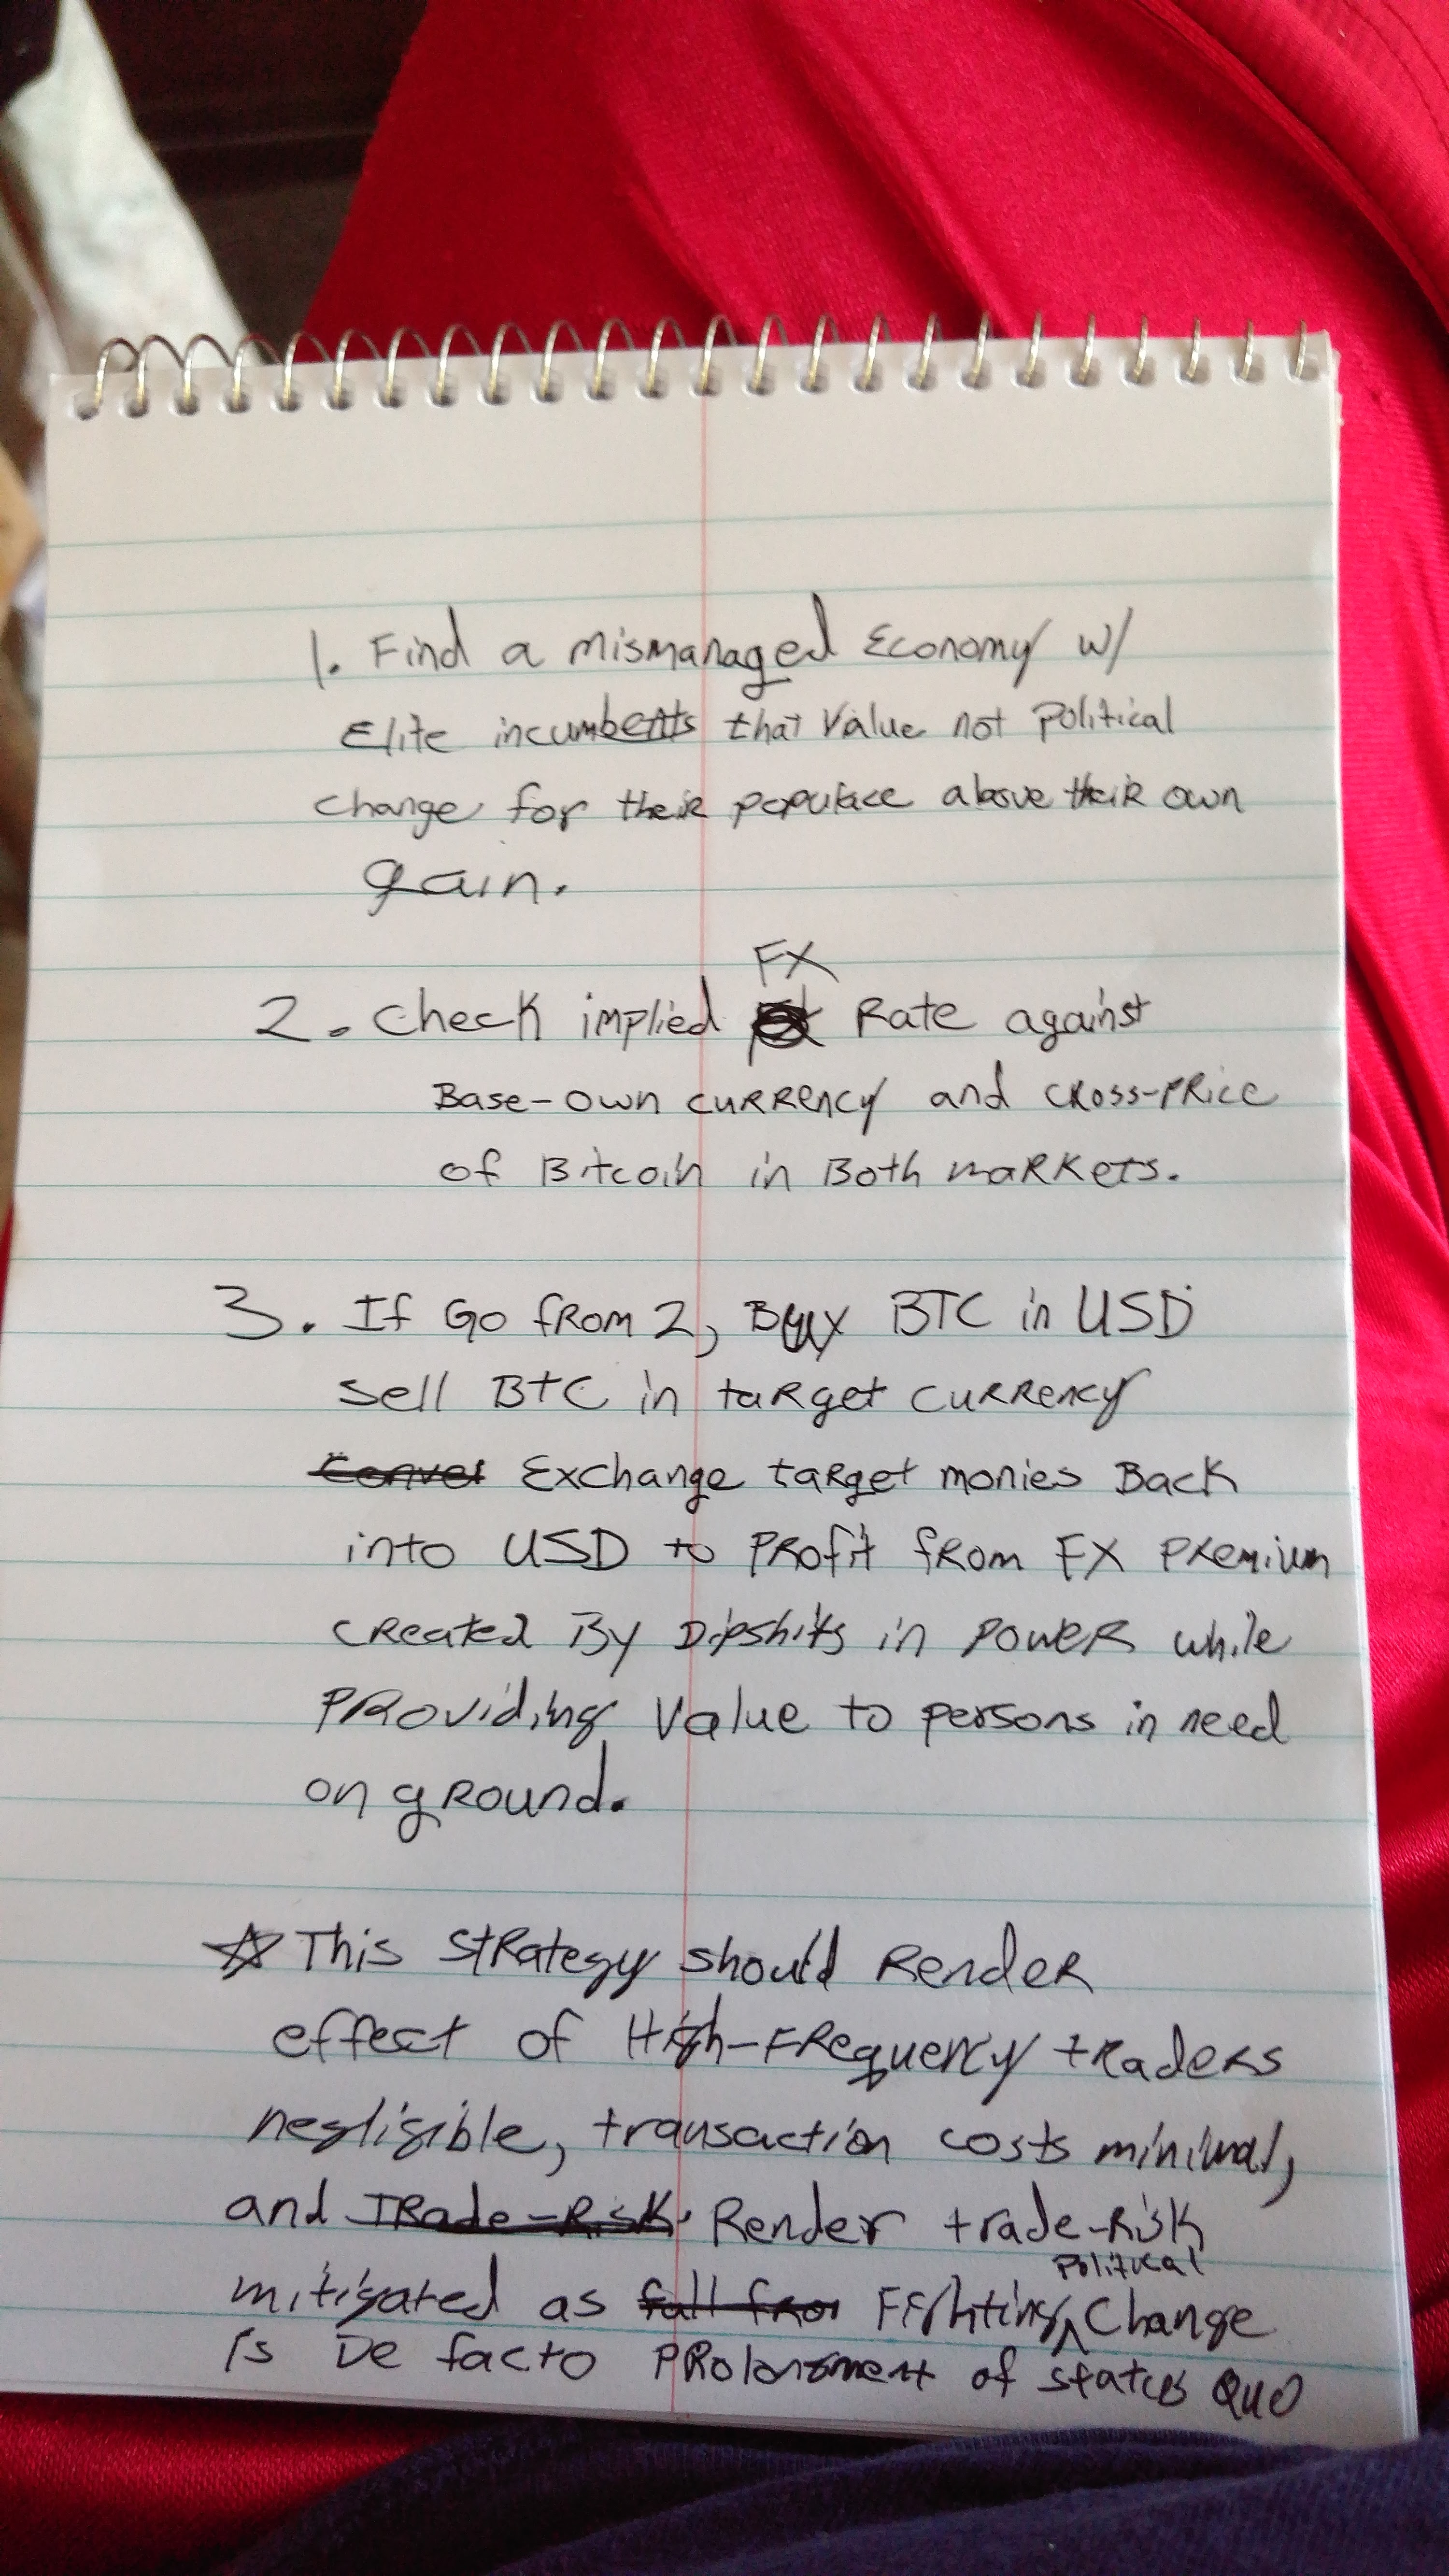 1. Find a mismanaged Economy w/
Elite incumbents that value not political
change for their populace above their own
gain.
FX
2. Check implied Rate against
Base-own currency and cross-price
of Bitcoin in Both markets.
3. If Go from 2, Buy BTC in USD
sell BTC in target currency
Conver Exchange target monies Back
into USD to profit from FX premium
created By Dipshits in power while
providing value to persons in need
on ground.
☆ This strategy should Render
effect of High-Frequency traders
negligible, transaction costs minimal,
and Trade-Risk Render trade-risk
political
mitigated as fall from Fighting ^ Change
is De facto prolongment of status quo